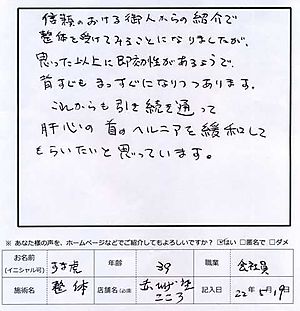 信頼のおける御人からの紹介で
整体を受けてみることになりましたが、
思った以上に即効性があるようで、
背すじもまっすぐになりつつあります。
これからも引き続き通って
肝心の首のヘルニアを緩和して
もらいたいと思っています。
※ あなた様の声を、ホームページなどでご紹介してもよろしいですか？ ☑はい □匿名で □ダメ
お名前 (イニシャル可) 年齢 39 職業 会社員
施術名 整体 店舗名(必須) こころ 記入日 22年5月19日